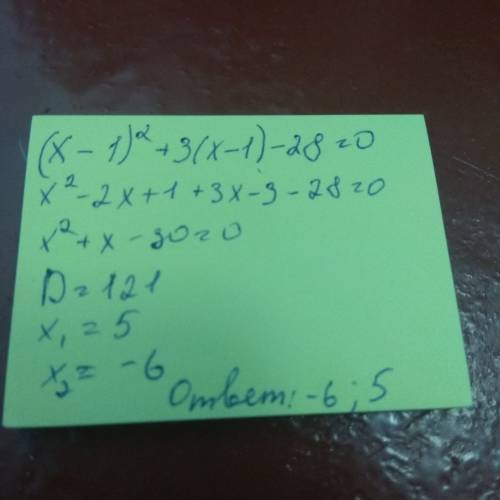 (x - 1)² + 3(x - 1) - 28 = 0
x² - 2x + 1 + 3x - 3 - 28 = 0
x² + x - 30 = 0
D = 121
x₁ = 5
x₂ = -6
Ответ: -6; 5